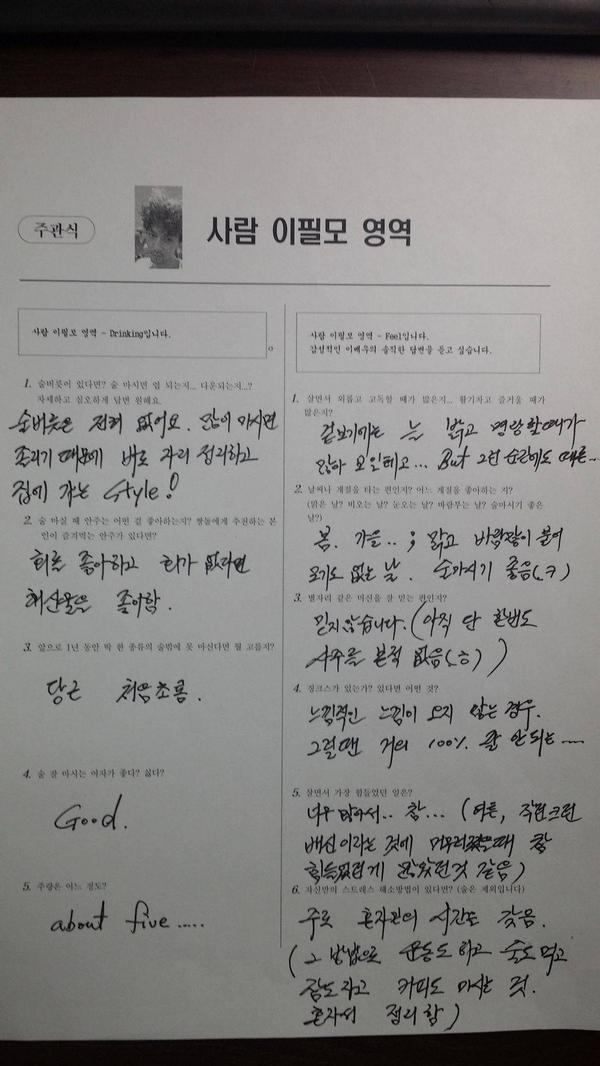 주관식
사람 이필모 영역
사람 이필모 영역 - Drinking입니다.
1. 술버릇이 있다면? 술 마시면 업 되는지... 다운되는지...?
자세하고 심오하게 답변 원해요.
술버릇은 전혀 없어요. 많이 마시면
졸리기 때문에 바로 자리 정리하고
집에 가는 Style!
2. 술 마실 때 안주는 어떤 걸 좋아하는지? 쌍둘에게 추천하는 본
인이 즐겨먹는 안주가 있다면?
회를 좋아하고 회가 없다면
해산물을 좋아함.
3. 앞으로 1년 동안 딱 한 종류의 술밖에 못 마신다면 뭘 고를지?
당근 처음초롬.
4. 술 잘 마시는 여자가 좋다? 싫다?
Good.
5. 주량은 어느 정도?
about five .....
사람 이필모 영역 - Feel입니다.
감성적인 이배우의 솔직한 답변을 듣고 싶습니다.
1. 살면서 외롭고 고독할 때가 많은지... 활기차고 즐거울 때가
많은지?
겉보기에는 늘 밝고 명랑할때가
많아 보일테고... But 그런 순간에도 때론...
2. 날씨나 계절을 타는 편인지? 어느 계절을 좋아하는 지?
(맑은 날? 비오는 날? 눈오는 날? 바람부는 날? 술마시기 좋은
날?)
봄. 가을.. ; 맑고 바람많이 불어
모기도 없는 날. 술마시기 좋음(ㅋ)
3. 별자리 같은 미신을 잘 믿는 편인지?
믿지않습니다. (아직 단 한번도
사주를 본적 없음(ㅎ))
4. 징크스가 있는가? 있다면 어떤 것?
느낌적인 느낌이 오지 않는 경우.
그럴땐 거의 100% 잘 안되는....
5. 살면서 가장 힘들었던 일은?
너무 많아서.. 참... (여튼, 작던크던
배신이라는 것에 때 참
힘들었던게 많았던것 같음)
6. 자신만의 스트레스 해소방법이 있다면? (술은 제외입니다)
주로 혼자만의 시간을 갖음.
(그 방법으로 운동도 하고 술도 먹고
잠도자고 커피도 마시는 것.
혼자서 정리함)